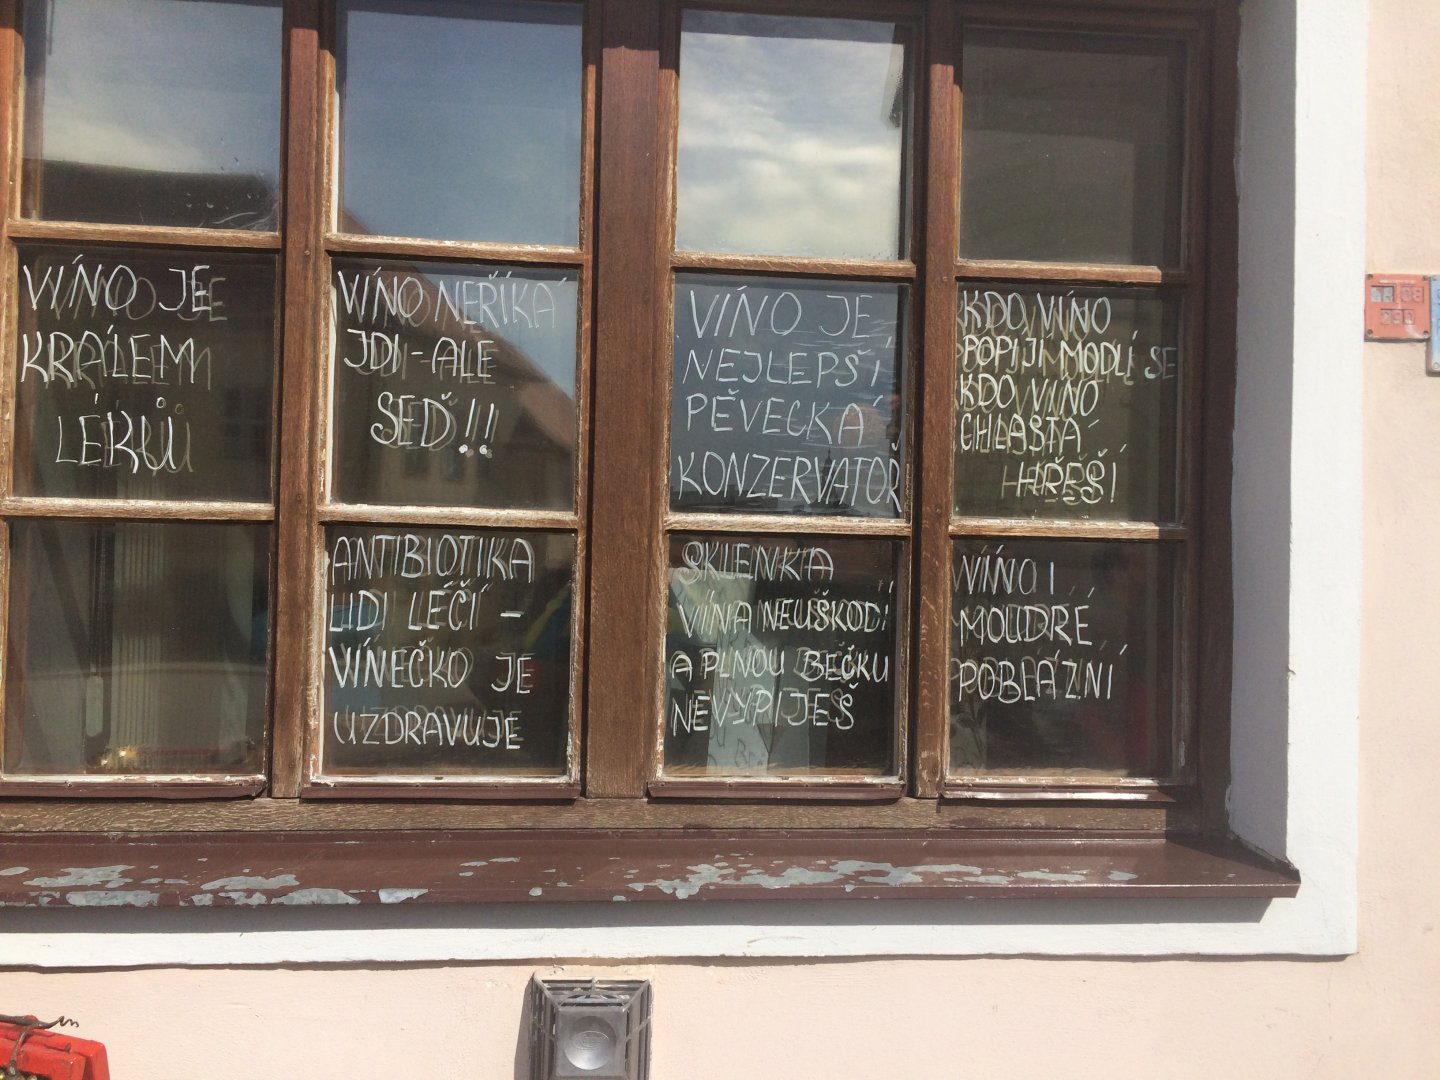 VÍNO JE
KRÁLEM
LÉKŮ
VÍNO NEŘÍKÁ
JDI - ALE
SEĎ!!
VÍNO JE
NEJLEPŠÍ
PĚVECKÁ
KONZERVATOŘ
KDO VÍNO
POPIJÍ MODLÍ SE
KDO VÍNO
CHLASTÁ
HŘEŠÍ
ANTIBIOTIKA
LIDI LÉČÍ -
VÍNEČKO JE
UZDRAVUJE
SKLENKA
VÍNA NEUŠKODÍ
A PLNOU BEČKU
NEVYPIJEŠ
VÍNO I
MOUDRÉ
POBLÁZNÍ